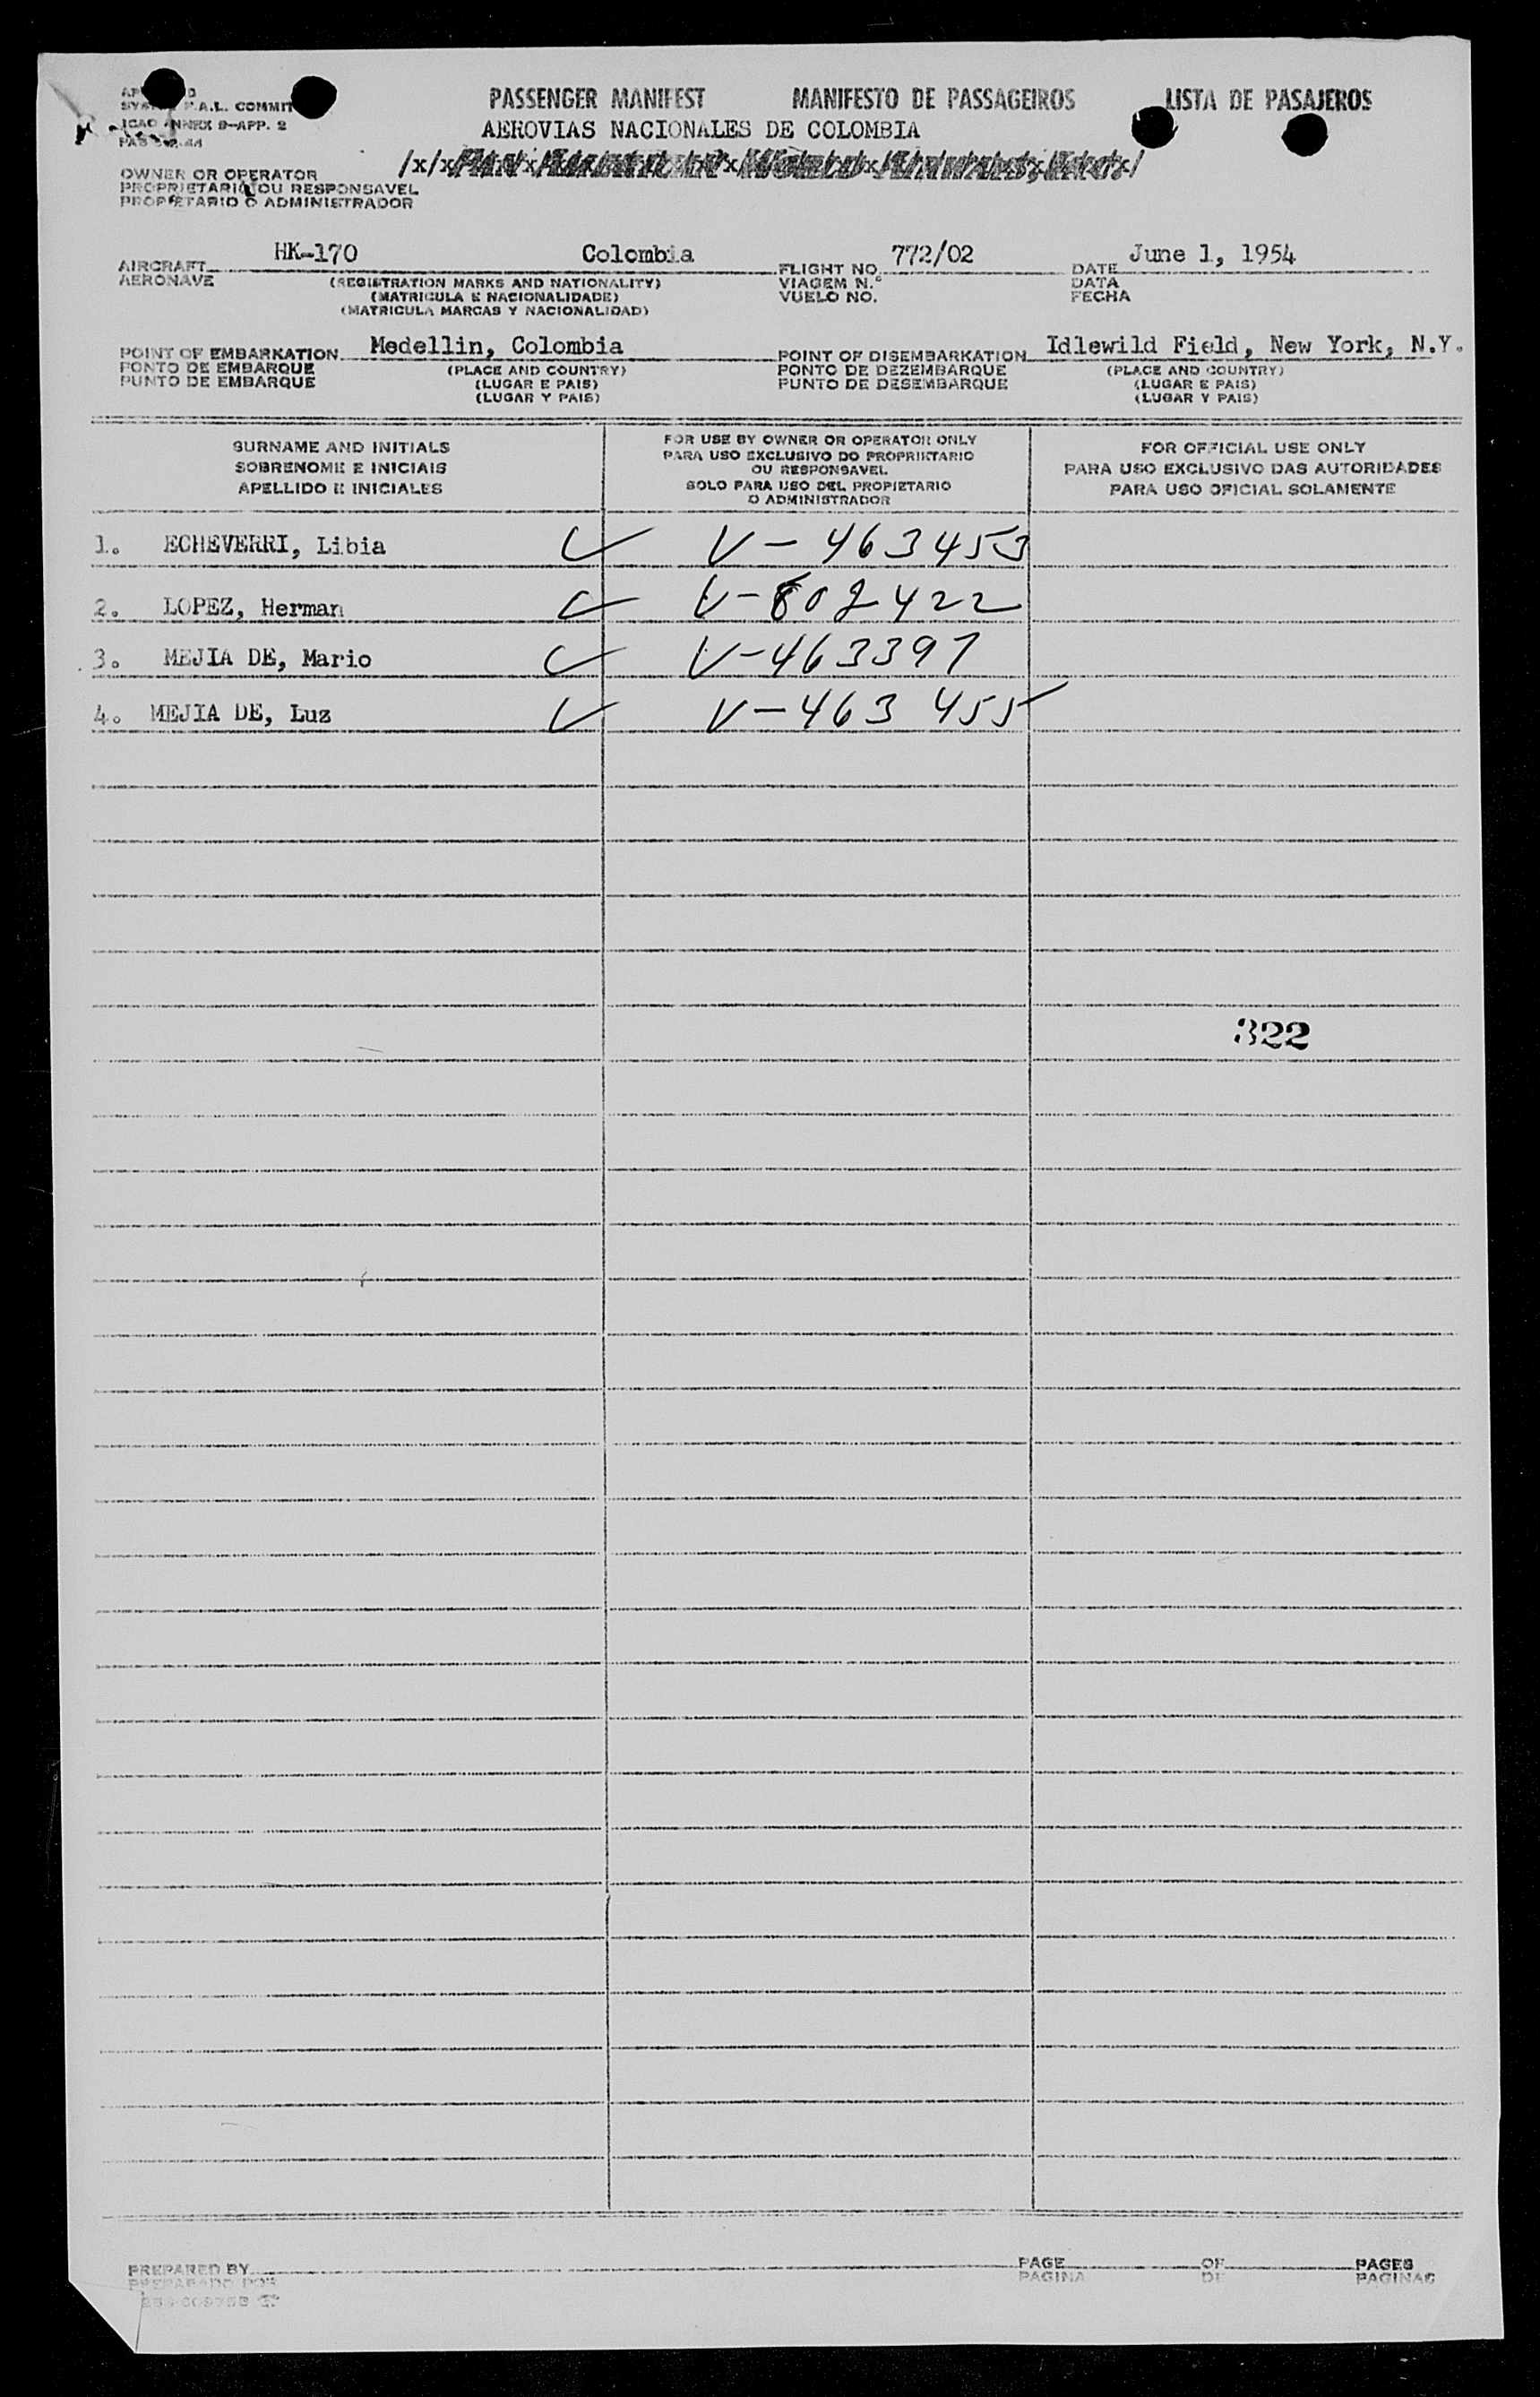 PASSENGER MANIFEST MANIFESTO DE PASSAGEIROS LISTA DE PASAJEROS
P.A.L. COMMIT
ICAO ANNEX 9-APP. 2
AEROVIAS NACIONALES DE COLOMBIA
OWNER OR OPERATOR
PROPRIETARIO OU RESPONSAVEL
PROPIETARIO O ADMINISTRADOR
AIRCRAFT HK-170 Colombia FLIGHT NO. 772/02 DATE June 1, 1954
AERONAVE (REGISTRATION MARKS AND NATIONALITY) VIAGEM N.º DATA
(MATRICULA E NACIONALIDADE) VUELO NO. FECHA
(MATRICULA MARCAS Y NACIONALIDAD)
POINT OF EMBARKATION Medellin, Colombia POINT OF DISEMBARKATION Idlewild Field, New York, N.Y.
PONTO DE EMBARQUE (PLACE AND COUNTRY) PONTO DE DEZEMBARQUE (PLACE AND COUNTRY)
PUNTO DE EMBARQUE (LUGAR E PAIS) PUNTO DE DESEMBARQUE (LUGAR E PAIS)
(LUGAR Y PAIS) (LUGAR Y PAIS)
SURNAME AND INITIALS
SOBRENOME E INICIAIS
APELLIDO E INICIALES
FOR USE BY OWNER OR OPERATOR ONLY
PARA USO EXCLUSIVO DO PROPRIETARIO
OU RESPONSAVEL
SOLO PARA USO DEL PROPIETARIO
O ADMINISTRADOR
FOR OFFICIAL USE ONLY
PARA USO EXCLUSIVO DAS AUTORIDADES
PARA USO OFICIAL SOLAMENTE
1. ECHEVERRI, Libia ✓ V-463453
2. LOPEZ, Herman ✓ V-802422
3. MEJIA DE, Mario ✓ V-463397
4. MEJIA DE, Luz ✓ V-463 455
322
PREPARED BY PAGE OF PAGES
PREPARADO POR PAGINA DE PAGINAS